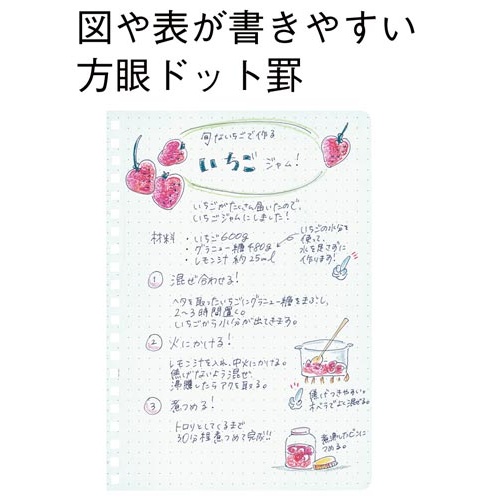 図や表が書きやすい
方眼ドット罫
旬ないちごで作る
いちごジャム!
いちごがたくさん届いたので、
いちごジャムにしました!
材料・いちご600g
・グラニュー糖480g
・レモン汁 約25ml
いちごの水分を
使って、
水を足さずに
作ります!
① 混ぜ合わせる!
ヘタを取ったいちごにグラニュー糖をまぶし、
2~3時間置く。
いちごから水分が出てきます。
② 火にかける!
レモン汁を入れ、中火にかける。
焦げないよう混ぜ、
沸騰したらアクを取る。
焦げつきやすい。
ヘラでよく混ぜる。
③ 煮つめる!
トロリとしてくるまで
30分程煮つめて完成!!
煮沸したビンに
つめる。